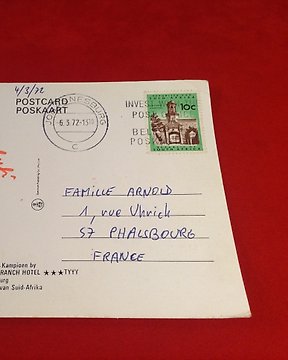 4/3/72
POSTCARD
POSKAART
JOHANNESBURG
-6.3.72-13
C
INVEST
POS
BEL
POS
10c
FAMILLE ARNOLD
1, rue Uhrich
57 PHALSBOURG
FRANCE
-Kampioene by
RANCH HOTEL ★★★TYYY
urg
van Suid-Afrika